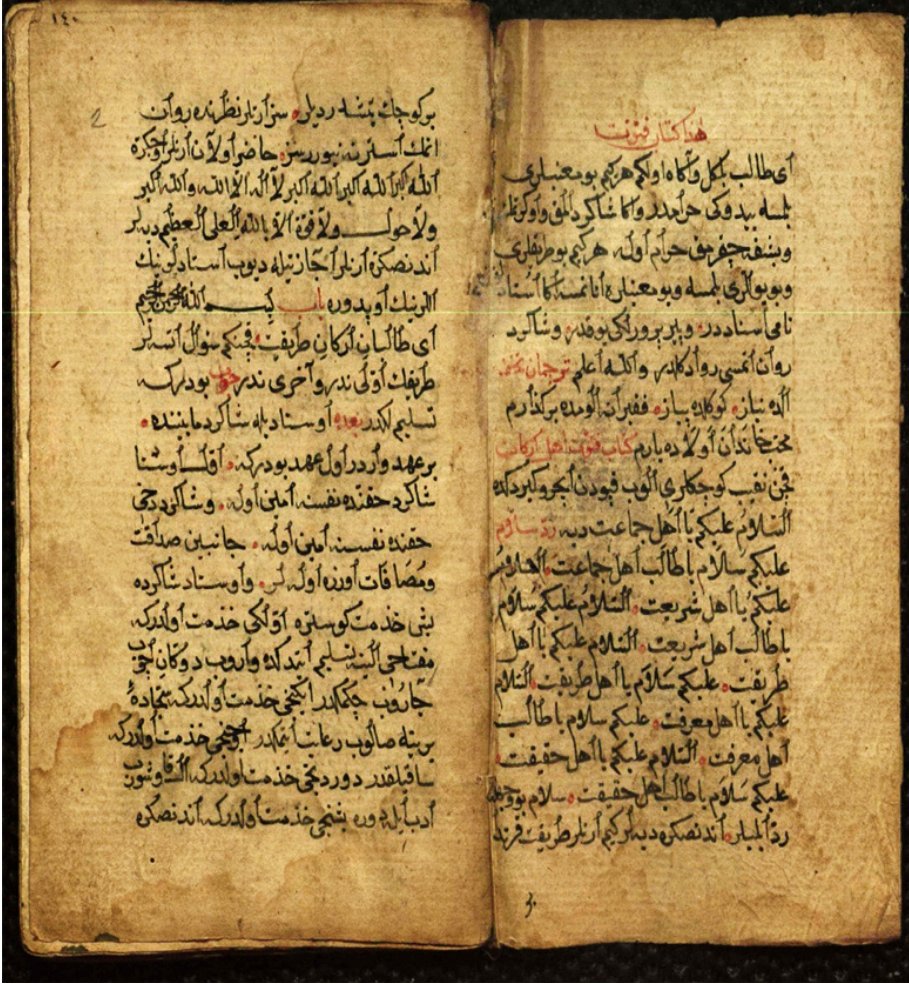 هذا كتاب فتوت
أى طالب بلكل واكاه اولكم هر كيم بو معنيلرى
بلسه يدوكى حرامدر واكا شاكرد
وبشقه چقرمق حرام اوله هر كيم بو طريقلرى
وبو يوللرى بلمسه وبو معنيلره انانمسه اكا استاد
نامى استاددر و پير پرورلكى يوقدر وشاكرد
روان اتمسى روا دكلدر والله اعلم ترجمان
الده نياز كوكلده نياز فقير ان
محب خاندان اولاده يارم كتاب فتوت اهل اركان
قچن نقيب كوچكلرى الوب قپودن ايچرو كيردكده
السلام عليكم يا اهل جماعت ديه رد سلام
عليكم سلام يا طالب اهل جماعت السلام
عليكم يا اهل شريعت السلام عليكم سلام
يا طالب اهل شريعت السلام عليكم يا اهل
طريقت عليكم سلام يا اهل طريقت السلام
عليكم يا اهل معرفت عليكم سلام يا طالب
اهل معرفت السلام عليكم يا اهل حقيقت
عليكم سلام يا طالب اهل حقيقت سلام بو وجهله
رد ايليلر اندنصكره ديه لركيم ارنلر طريقت
١٤٠
2
بركوچك يتشدرديلر سز ارنلر نظرنده روان
اتمك استر نه بيوررسز حاضر اولان ارنلر
الله اكبر الله اكبر الله اكبر لا اله الا الله والله اكبر
ولا حول ولا قوة الا بالله العلى العظيم ديه لر
اندنصكره ارنلر اجازتيله ديوب استادلرينك
اللرينك اوپدوره باب بسم الله الرحمن الرحيم
اى طالبان اركان طريقت قچنكم سؤال اتسه لر
طريقك اولى ندر و آخرى ندر جواب بودركه
تسليم اولمقدر بعده اوستاد يله شاكرد مابيننده
بر عهد واردر اول عهد بودركه اوّلا اوستا
شاكرد حقنده نفسنه امين اوله وشاكرد دخى
حقنده نفسنه امين اوله جانبين صداقت
ومصافات اوزره اوله لر و اوستاد شاكرده
بش خذمت كوستره اوّلكى خذمت اولدركه
مفتاحى الينه تسليم اتدكده واروب دوكان آچوب
جاروب چكمكدر ايكنجى خذمت اولدركه سجاده
يريله صالوب رعايت اتمكدر اوچنجى خذمت اولدركه
ساقيلقدر دوردنجى خذمت اولدركه
ادب ايله دوره بشنجى خذمت اولدركه اندنصكره